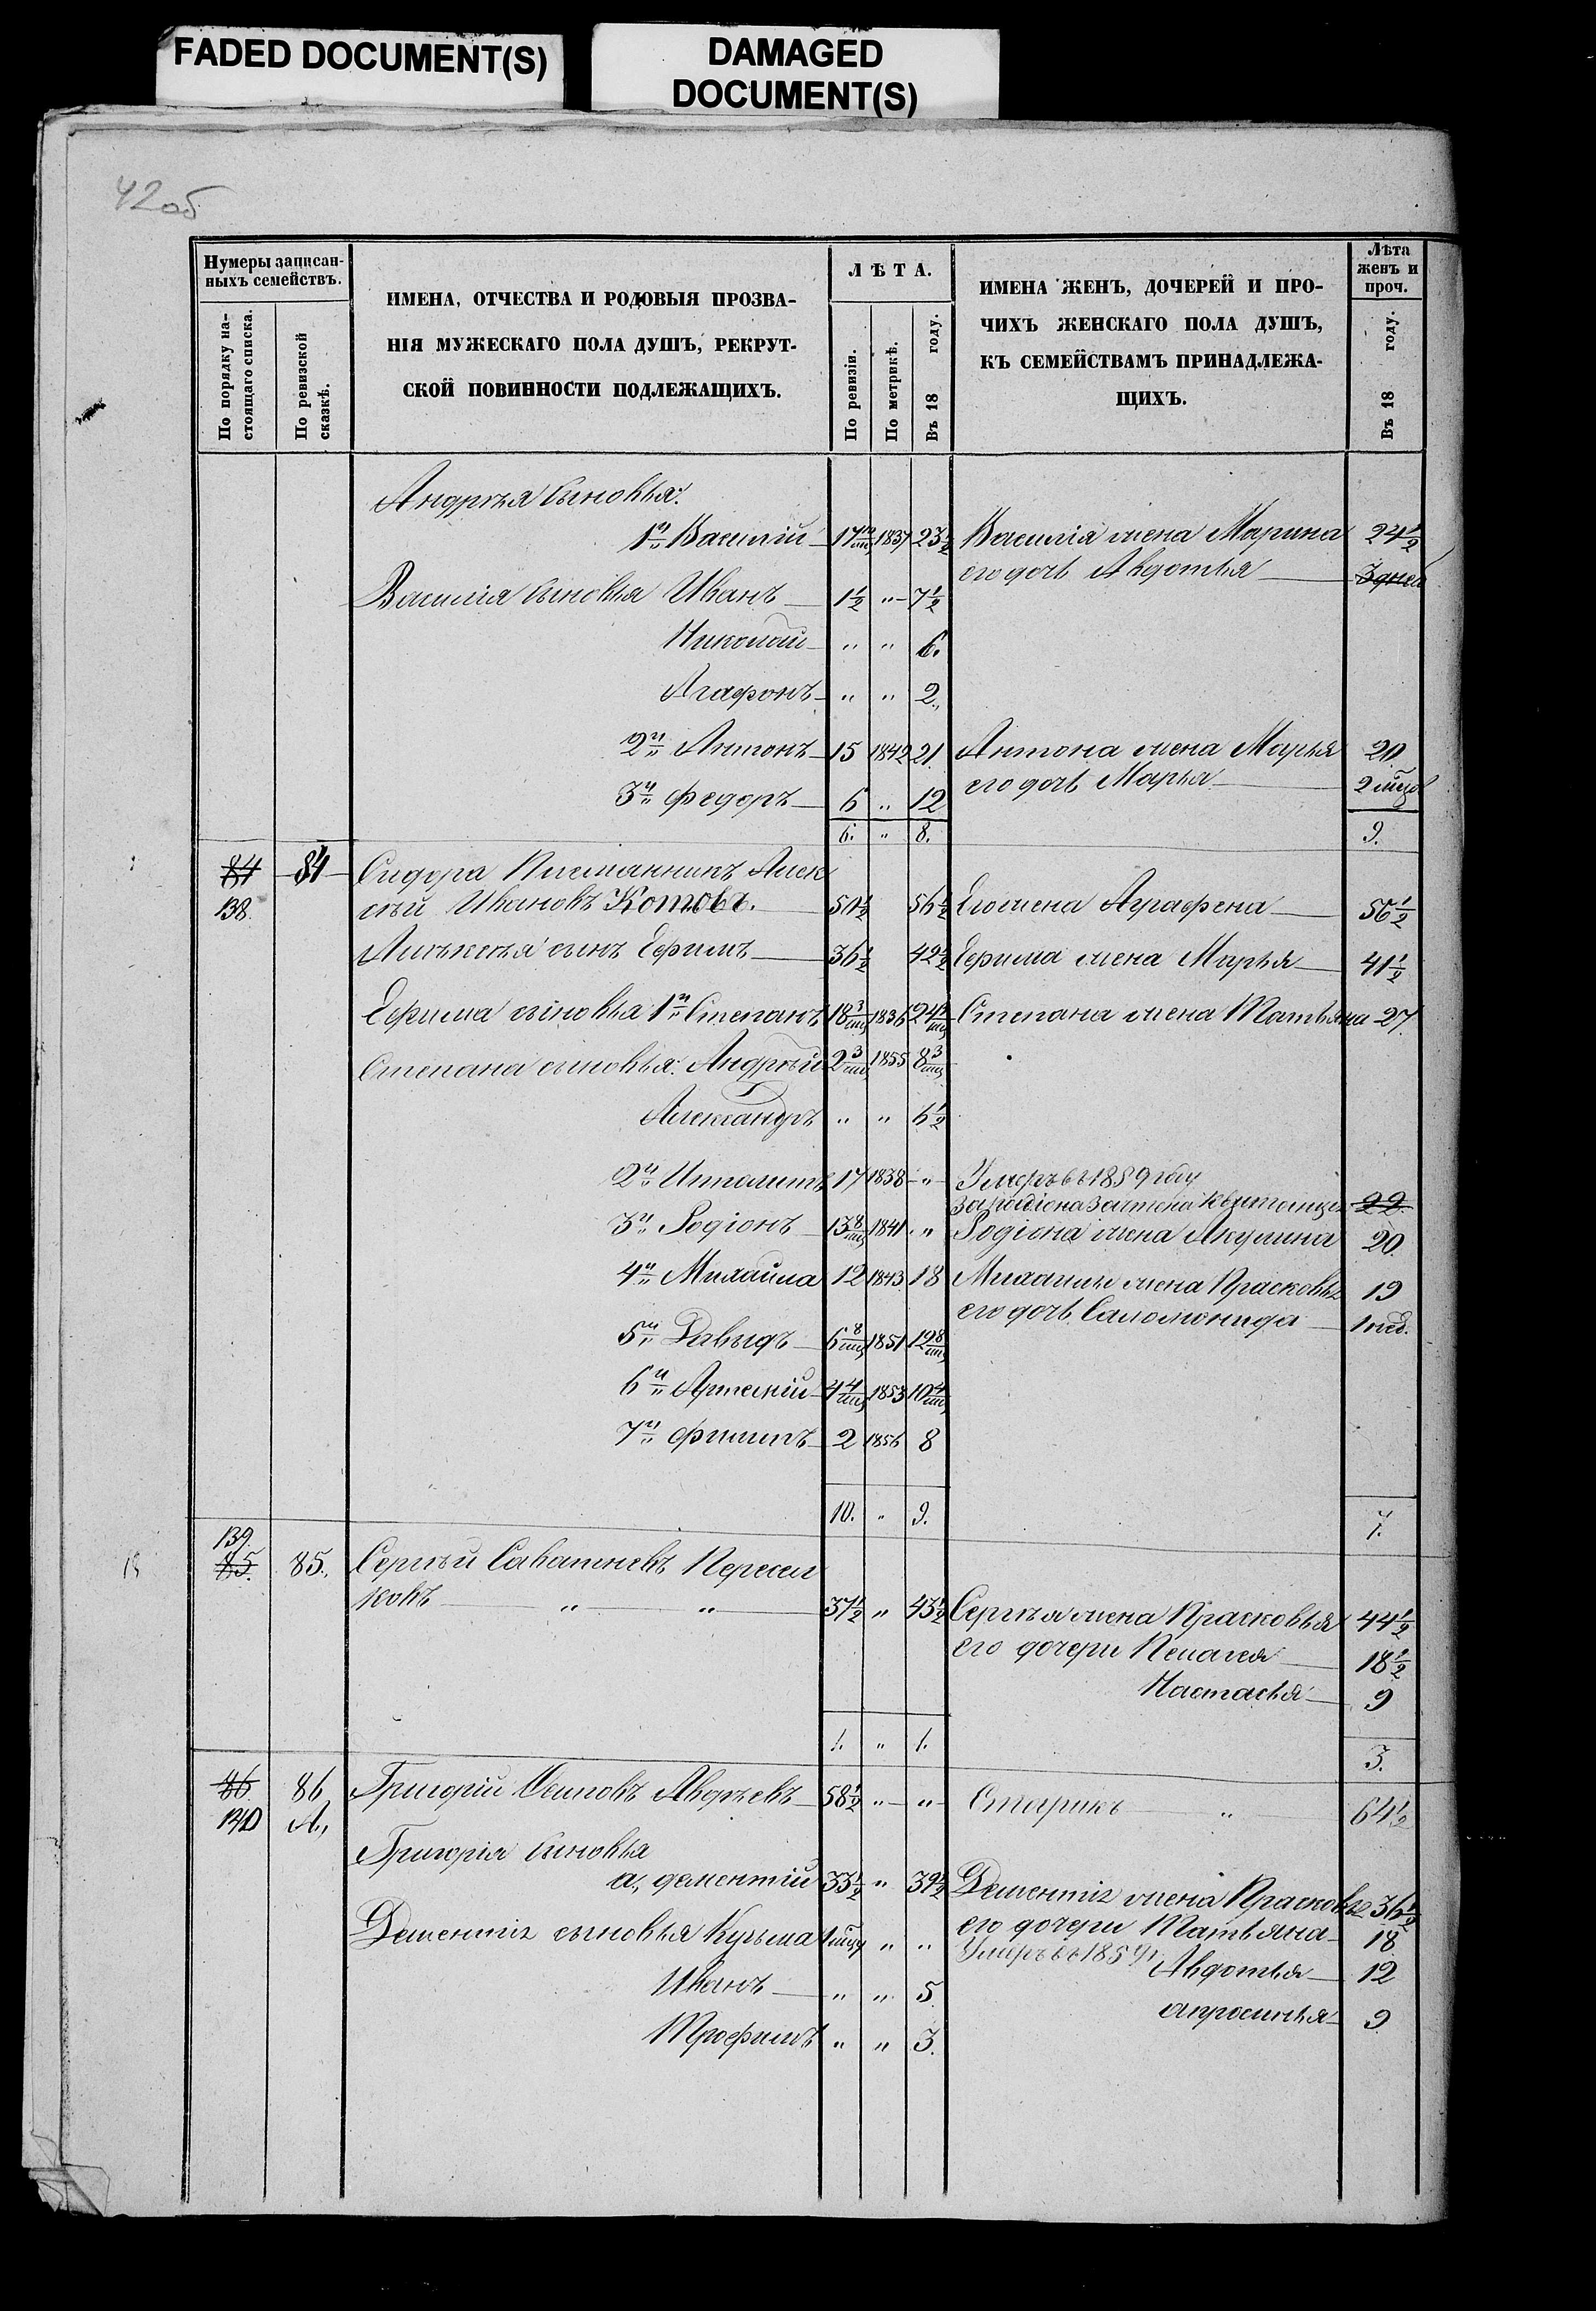 FADED DOCUMENT(S)
DAMAGED
DOCUMENT(S)
42об
Нумеры записан-
ныхъ семействъ.
По порядку на-
стоящаго списка.
По ревизской
сказкѣ.
ИМЕНА, ОТЧЕСТВА И РОДОВЫЯ ПРОЗВА-
НІЯ МУЖЕСКАГО ПОЛА ДУШЪ, РЕКРУТ-
СКОЙ ПОВИННОСТИ ПОДЛЕЖАЩИХЪ.
ЛѢТА.
По ревизіи.
По метрикѣ.
Въ 18 году.
ИМЕНА ЖЕНЪ, ДОЧЕРЕЙ И ПРО-
ЧИХЪ ЖЕНСКАГО ПОЛА ДУШЪ,
КЪ СЕМЕЙСТВАМЪ ПРИНАДЛЕЖА-
ЩИХЪ.
Лѣта
женъ и
проч.
Въ 18 году.
Андрѣя сыновья:
1й Василій 1837 23½ Василія жена Марина 24½
его дочь Авдотья 3 дней
Василія сыновья Иванъ 1½ " 7½
Николай " " 6.
Агафонъ " " 2.
2й Антонъ 15 1842 21. Антона жена Марья 20.
его дочь Марья 2 мѣс
3й Федоръ 6 " 12
6. " 8. 9.
84 84 Сидора Племянникъ Алек
138. сѣй Ивановъ Котовъ. 50½ 56½ Его жена Аграфена 56½
Алѣксѣя сынъ Ефимъ 36½ 42½ Ефима жена Марья 41½
Ефима сыновья 1й Степанъ 18 3/мц 1836 24 Степана жена Татьяна 27.
Степана сыновья: Андрѣй 2 3/мц 1855 8 3/мц
Александръ " " 6½
2й Ипполитъ 17 1838 " Умеръ въ 1859 году
За Родіона Зачтена Квитанція 22.
3й Родіонъ 13 8/мц 1841 " Родіона жена Акулина 20.
4й Михайла 12 1843 18 Михаилы жена Прасковья 19
его дочь Саломонида 1 нед.
5й Давыдъ 6 8/мц 1851 12 8/мц
6й Артемій 4 4/мц 1853 10 4/мц
7й Филипъ 2 1856 8
10. " 9. 7.
139.
85. 85. Сергѣй Саватѣевъ Пересып
ковъ " " 37½ " 43½ Сергѣя жена Прасковья 44½
его дочери Пелагея 18½
Настасья 9
1. " 1. 3.
86 86 Григорій Осиповъ Авдѣевъ 58½ " " Старикъ " 64½
140 А.,
Григорія сыновья
а., Дементій 33½ " 39½ Дементія жена Прасковья 36½
его дочери Татьяна 18
Дементія сыновья Кузьма " " Умеръ въ 1859 г.
Авдотья 12
Иванъ " " 5.
Апросинья 9
Трофимъ " " 3.